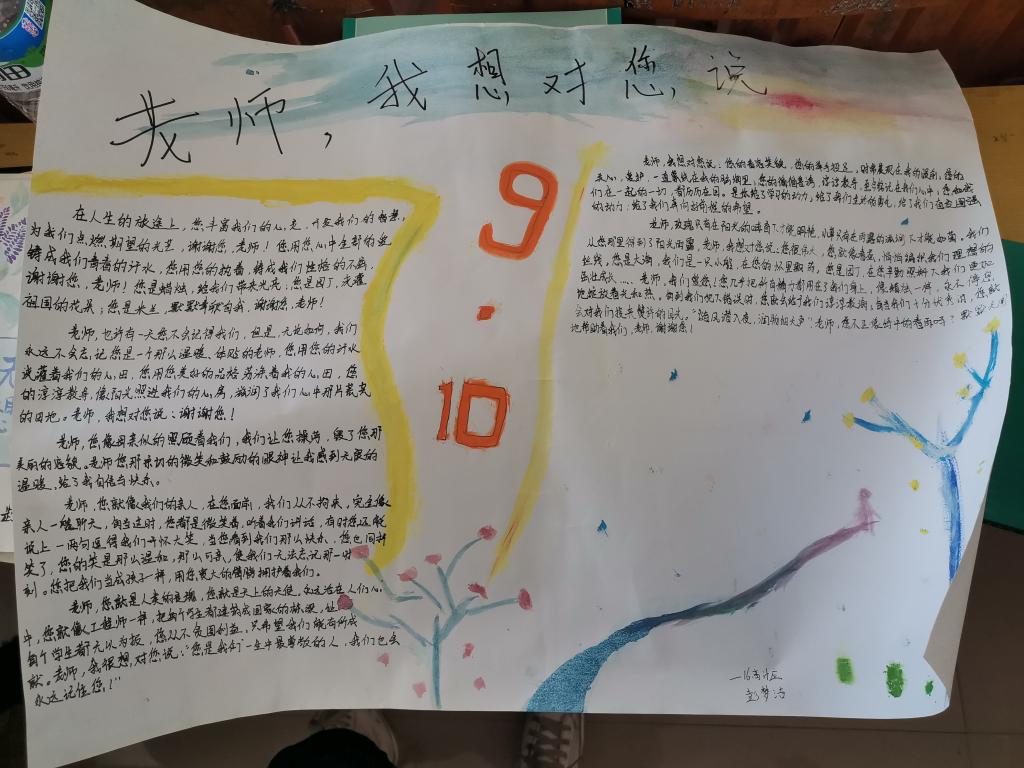 老师，我想对您说
9.10
在人生的旅途上，您丰富我们的心灵，开发我们的智慧，
为我们点燃期望的光芒，谢谢您，老师！您用您心中全部的爱
铸成我们青春的汁水，您用您的执着，铸成我们性格的不屈，
谢谢您，老师！您是蜡烛，给我们带来光亮；您是园丁，灌溉
祖国的花朵；您是米兰，默默奉献句我，谢谢您，老师！
老师，也许有一天您不会记得我们，但是，无论如何，我们
永远不会忘记您是一个那么温暖、体贴的老师，您用您的汁水
浇灌着我们的心田，您用您美好的品格芳净着我的心田，您
的淳淳教导，像阳光照进我们的心房，滋润了我们心中那片最美
的田地。老师，我想对您说：谢谢您！
老师，您像母亲似的照顾着我们，我们让您操劳，毁了您那
美丽的容貌。老师您那亲切的微笑和鼓励的眼神让我感到无限的
温暖，给了我自信与快乐。
老师，您就像我们的亲人，在您面前，我们从不拘束，完全像
亲人一般聊天，每当这时，您都是微笑着，听着我们讲话，有时您还能
说上一两句逗得我们开怀大笑，当您看到我们那么快乐，您也同样
笑了，您的笑是那么温和，那么可亲，使我们无法忘记那一时
刻。您把我们当成孩子一样，用您宽大的臂膀拥护着我们。
老师，您就是人类的灵魂，您就是天上的天使，永远活在人们心
中，您就像工程师一样，把每个学生都建筑成国家的栋梁，让
每个学生都无以为报，您从不贪图利益，只希望我们能有所成
就。老师，我很想对您说：“您是我们一生中最尊敬的人，我们也会
永远记住您！”
老师，我想对您说：您的音容笑貌，您的举手投足，时常展现在我的眼前，您的
关心，爱护，一直萦绕在我的脑海里；您的循循善诱，谆谆教导，至今铭记在我们心中；您和我
们在一起的一切，都历历在目，是您给了学习的动力；给了我们生活的勇气，给了我们奋发图强
的动力；给了我们走向前程的希望。
老师，玫瑰只有在阳光的哺育下才能开艳，小草只有在雨露的滋润下才能如茵。我们
从您那里得到了阳光雨露，老师，我想对您说：您很伟大，
红线，您是大海，我们是一只小船，在您的怀里
茁壮成长……老师，我们爱您！
地绽放着光和热，每到我们犯下错误时，您就会给予我们谆谆教诲，
会对我们投来赞许的目光。“随风潜入夜，润物细无声”老师，您不正是诗中的春雨吗？
地帮助着我们，老师，谢谢您！